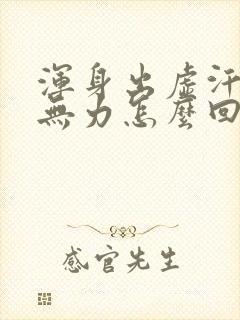 渾身出虛汗
無力怎麼回
感官先生